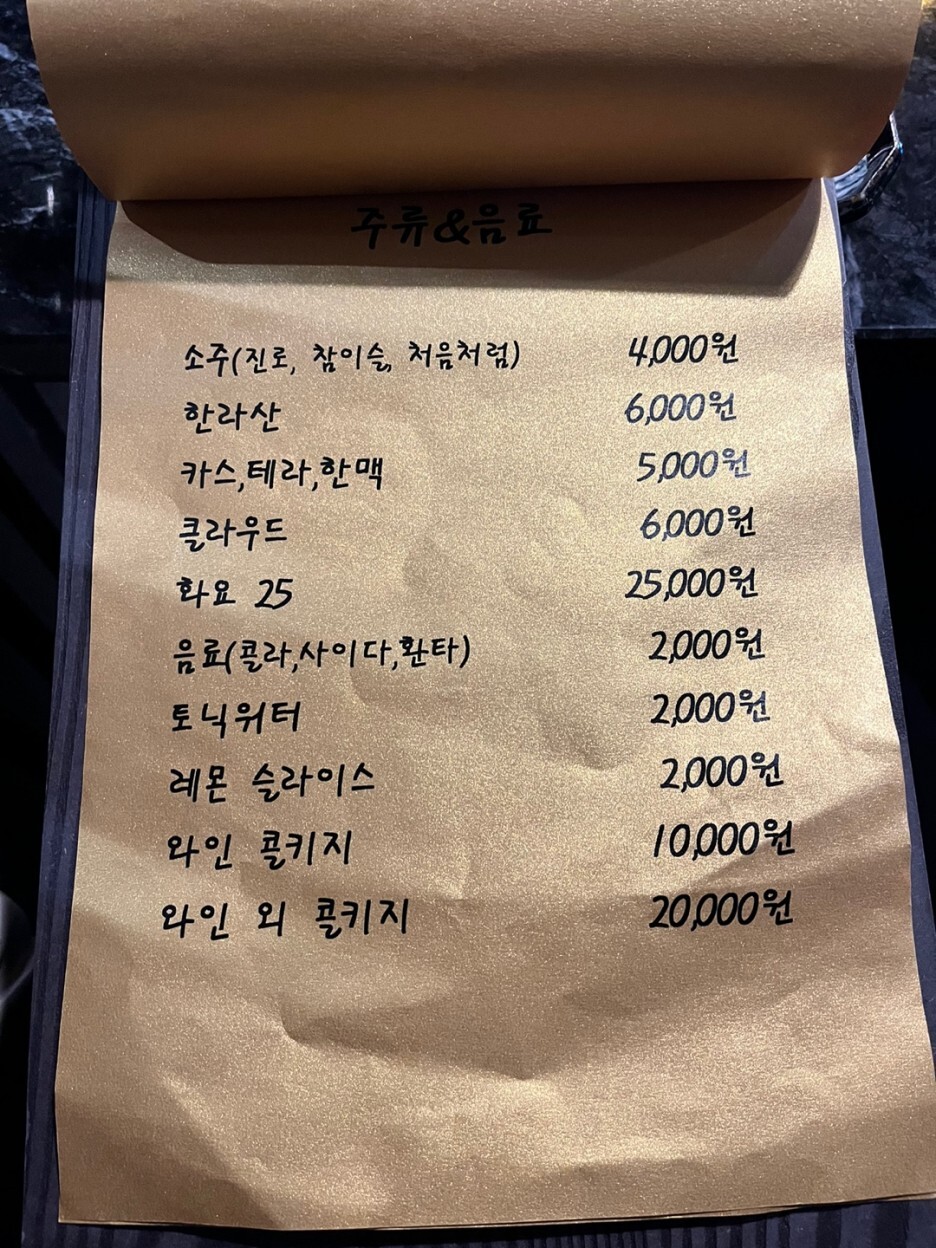 주류&음료
소주(진로, 참이슬, 처음처럼) 4,000원
한라산 6,000원
카스,테라,한맥 5,000원
클라우드 6,000원
화요 25 25,000원
음료(콜라,사이다,환타) 2,000원
토닉워터 2,000원
레몬 슬라이스 2,000원
와인 콜키지 10,000원
와인 외 콜키지 20,000원